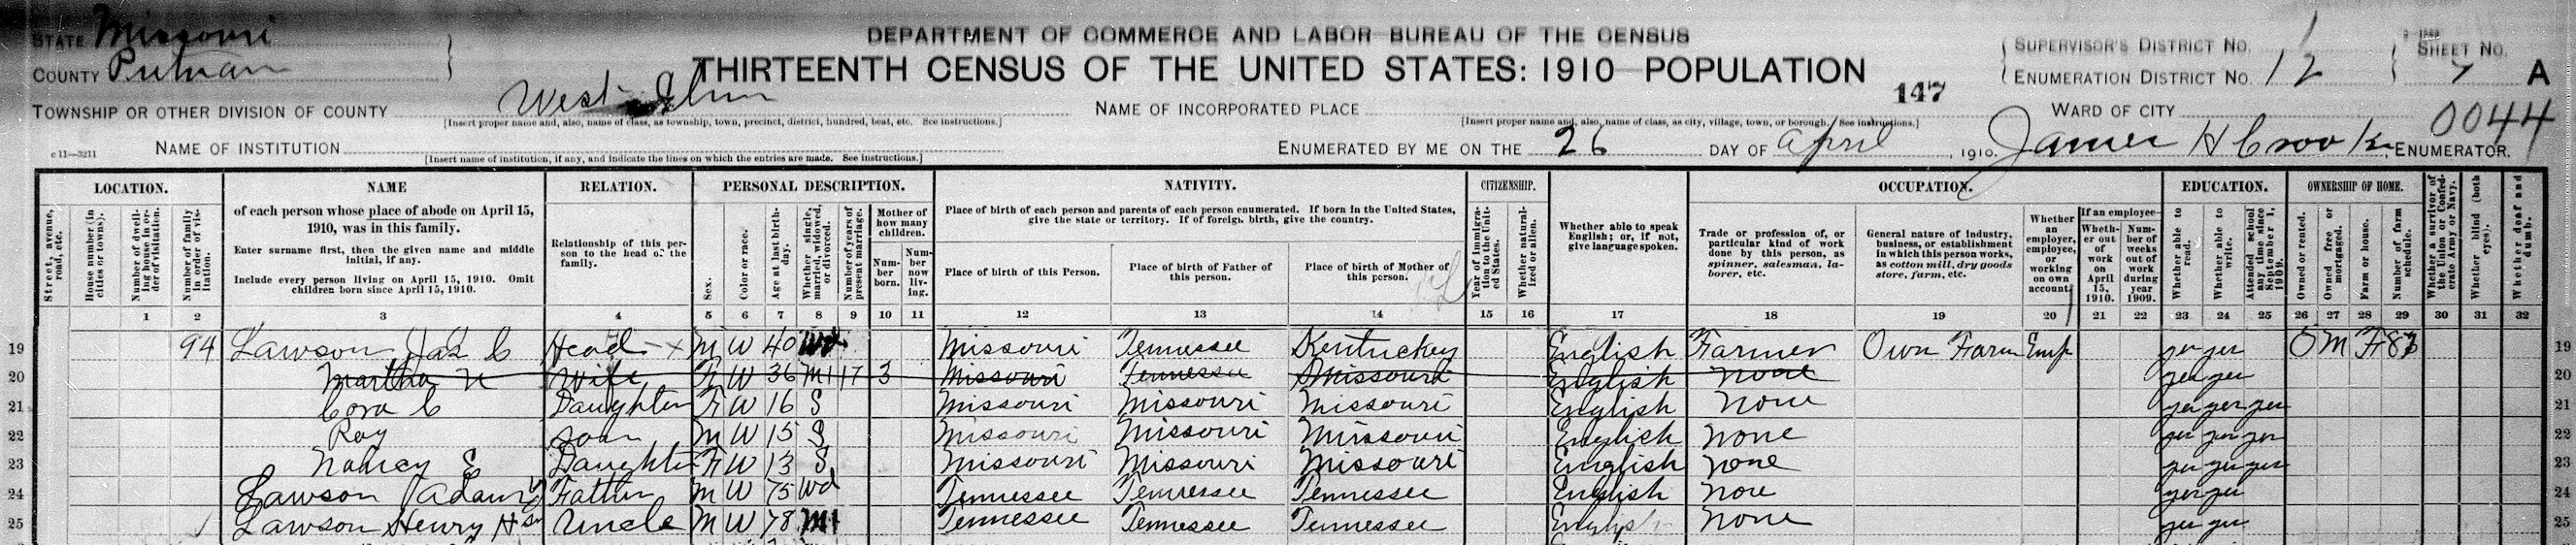 STATE Missouri
COUNTY Putnam
DEPARTMENT OF COMMERCE AND LABOR-BUREAU OF THE CENSUS
THIRTEENTH CENSUS OF THE UNITED STATES: 1910-POPULATION
SUPERVISOR'S DISTRICT NO. 1
ENUMERATION DISTRICT NO. 12
SHEET NO. 7 A
147
TOWNSHIP OR OTHER DIVISION OF COUNTY West Elm
[Insert proper name and, also, name of class, as township, town, precinct, district, hundred, beat, etc. See instructions.]
NAME OF INCORPORATED PLACE
[Insert proper name and, also, name of class, as city, village, town, or borough. See instructions.]
WARD OF CITY
0044
c 11—3211
NAME OF INSTITUTION
[Insert name of institution, if any, and indicate the lines on which the entries are made. See instructions.]
ENUMERATED BY ME ON THE 26 DAY OF April, 1910. James H Crook, ENUMERATOR.
LOCATION. NAME RELATION. PERSONAL DESCRIPTION. NATIVITY. CITIZENSHIP. OCCUPATION. EDUCATION. OWNERSHIP OF HOME.
Street, avenue, road, etc.
House number (in cities or towns).
Number of dwelling house in order of visitation.
Number of family in order of visitation.
of each person whose place of abode on April 15, 1910, was in this family.
Enter surname first, then the given name and middle initial, if any.
Include every person living on April 15, 1910. Omit children born since April 15, 1910.
Relationship of this person to the head of the family.
Sex.
Color or race.
Age at last birthday.
Whether single, married, widowed, or divorced.
Number of years of present marriage.
Mother of how many children.
Number born.
Number now living.
Place of birth of each person and parents of each person enumerated. If born in the United States, give the state or territory. If of foreign birth, give the country.
Place of birth of this Person.
Place of birth of Father of this person.
Place of birth of Mother of this person.
Year of immigration to the United States.
Whether naturalized or alien.
Whether able to speak English; or, if not, give language spoken.
Trade or profession of, or particular kind of work done by this person, as spinner, salesman, laborer, etc.
General nature of industry, business, or establishment in which this person works, as cotton mill, dry goods store, farm, etc.
Whether an employer, employee, or working on own account.
If an employee—
Whether out of work on April 15, 1910.
Number of weeks out of work during year 1909.
Whether able to read.
Whether able to write.
Attended school any time since September 1, 1909.
Owned or rented.
Owned free or mortgaged.
Farm or house.
Number of farm schedule.
Whether a survivor of the Union or Confederate Army or Navy.
Whether blind (both eyes).
Whether deaf and dumb.
1 2 3 4 5 6 7 8 9 10 11 12 13 14 15 16 17 18 19 20 21 22 23 24 25 26 27 28 29 30 31 32
19 94 Lawson Jas C Head M W 40 Wd Missouri Tennessee Kentucky English Farmer Own Farm Emp yes yes O M F 83 19
20 Martha N Wife F W 36 M1 17 3 Missouri Tennessee Missouri English none yes yes 20
21 Cora C Daughter F W 16 S Missouri Missouri Missouri English none yes yes yes 21
22 Roy Son M W 15 S Missouri Missouri Missouri English none yes yes yes 22
23 Nancy E Daughter F W 13 S Missouri Missouri Missouri English none yes yes yes 23
24 Lawson Adam Father M W 75 Wd Tennessee Tennessee Tennessee English none yes yes 24
25 Lawson Henry H Uncle M W 78 M1 Tennessee Tennessee Tennessee English none yes yes 25